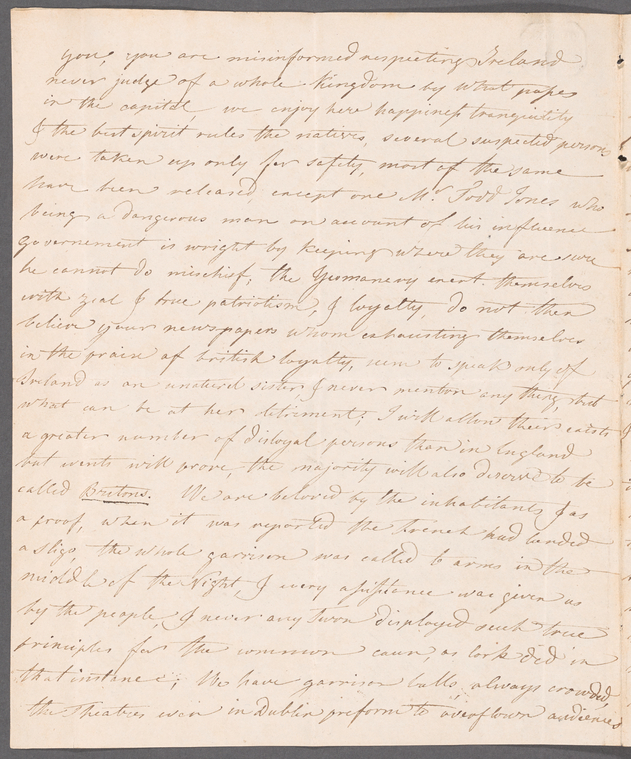 you, you are misinformed respecting Ireland,
never judge of a whole Kingdom by what papes
in the capital, we enjoy here happiness tranquility
& the best spirit rules the natives, several suspected persons
were taken up only for safety, most of the same
have been released except one Mr. Todd Jones who
being a dangerous man on account of his influence
governement is wright by keeping where they are sure
he cannot do mischief; the Yeomanery exert themselves
with zeal & true patriotism, & loyalty, do not then
believe your newspapers whom exhausting themselves
in the praise of british loyalty, seem to speak only of
Ireland as an unaturel sister & never mention any thing, but
what can be at her detriment; I will allow their exists
a greater number of disloyal persons than in England
but events will prove, the majority will also deserve to be
called Bretons. We are beloved by the inhabitants & as
a proof, when it was reported the French had landed
a Sligo, the whole garrison was called to arms in the
middle of the Night, & every assistance was given us
by the people, & never any town displayed such true
principles for the common cause, as Cork did in
that instance; We have garrison balls, always crowded,
the Theatres even in Dublin preform to overflown audiences